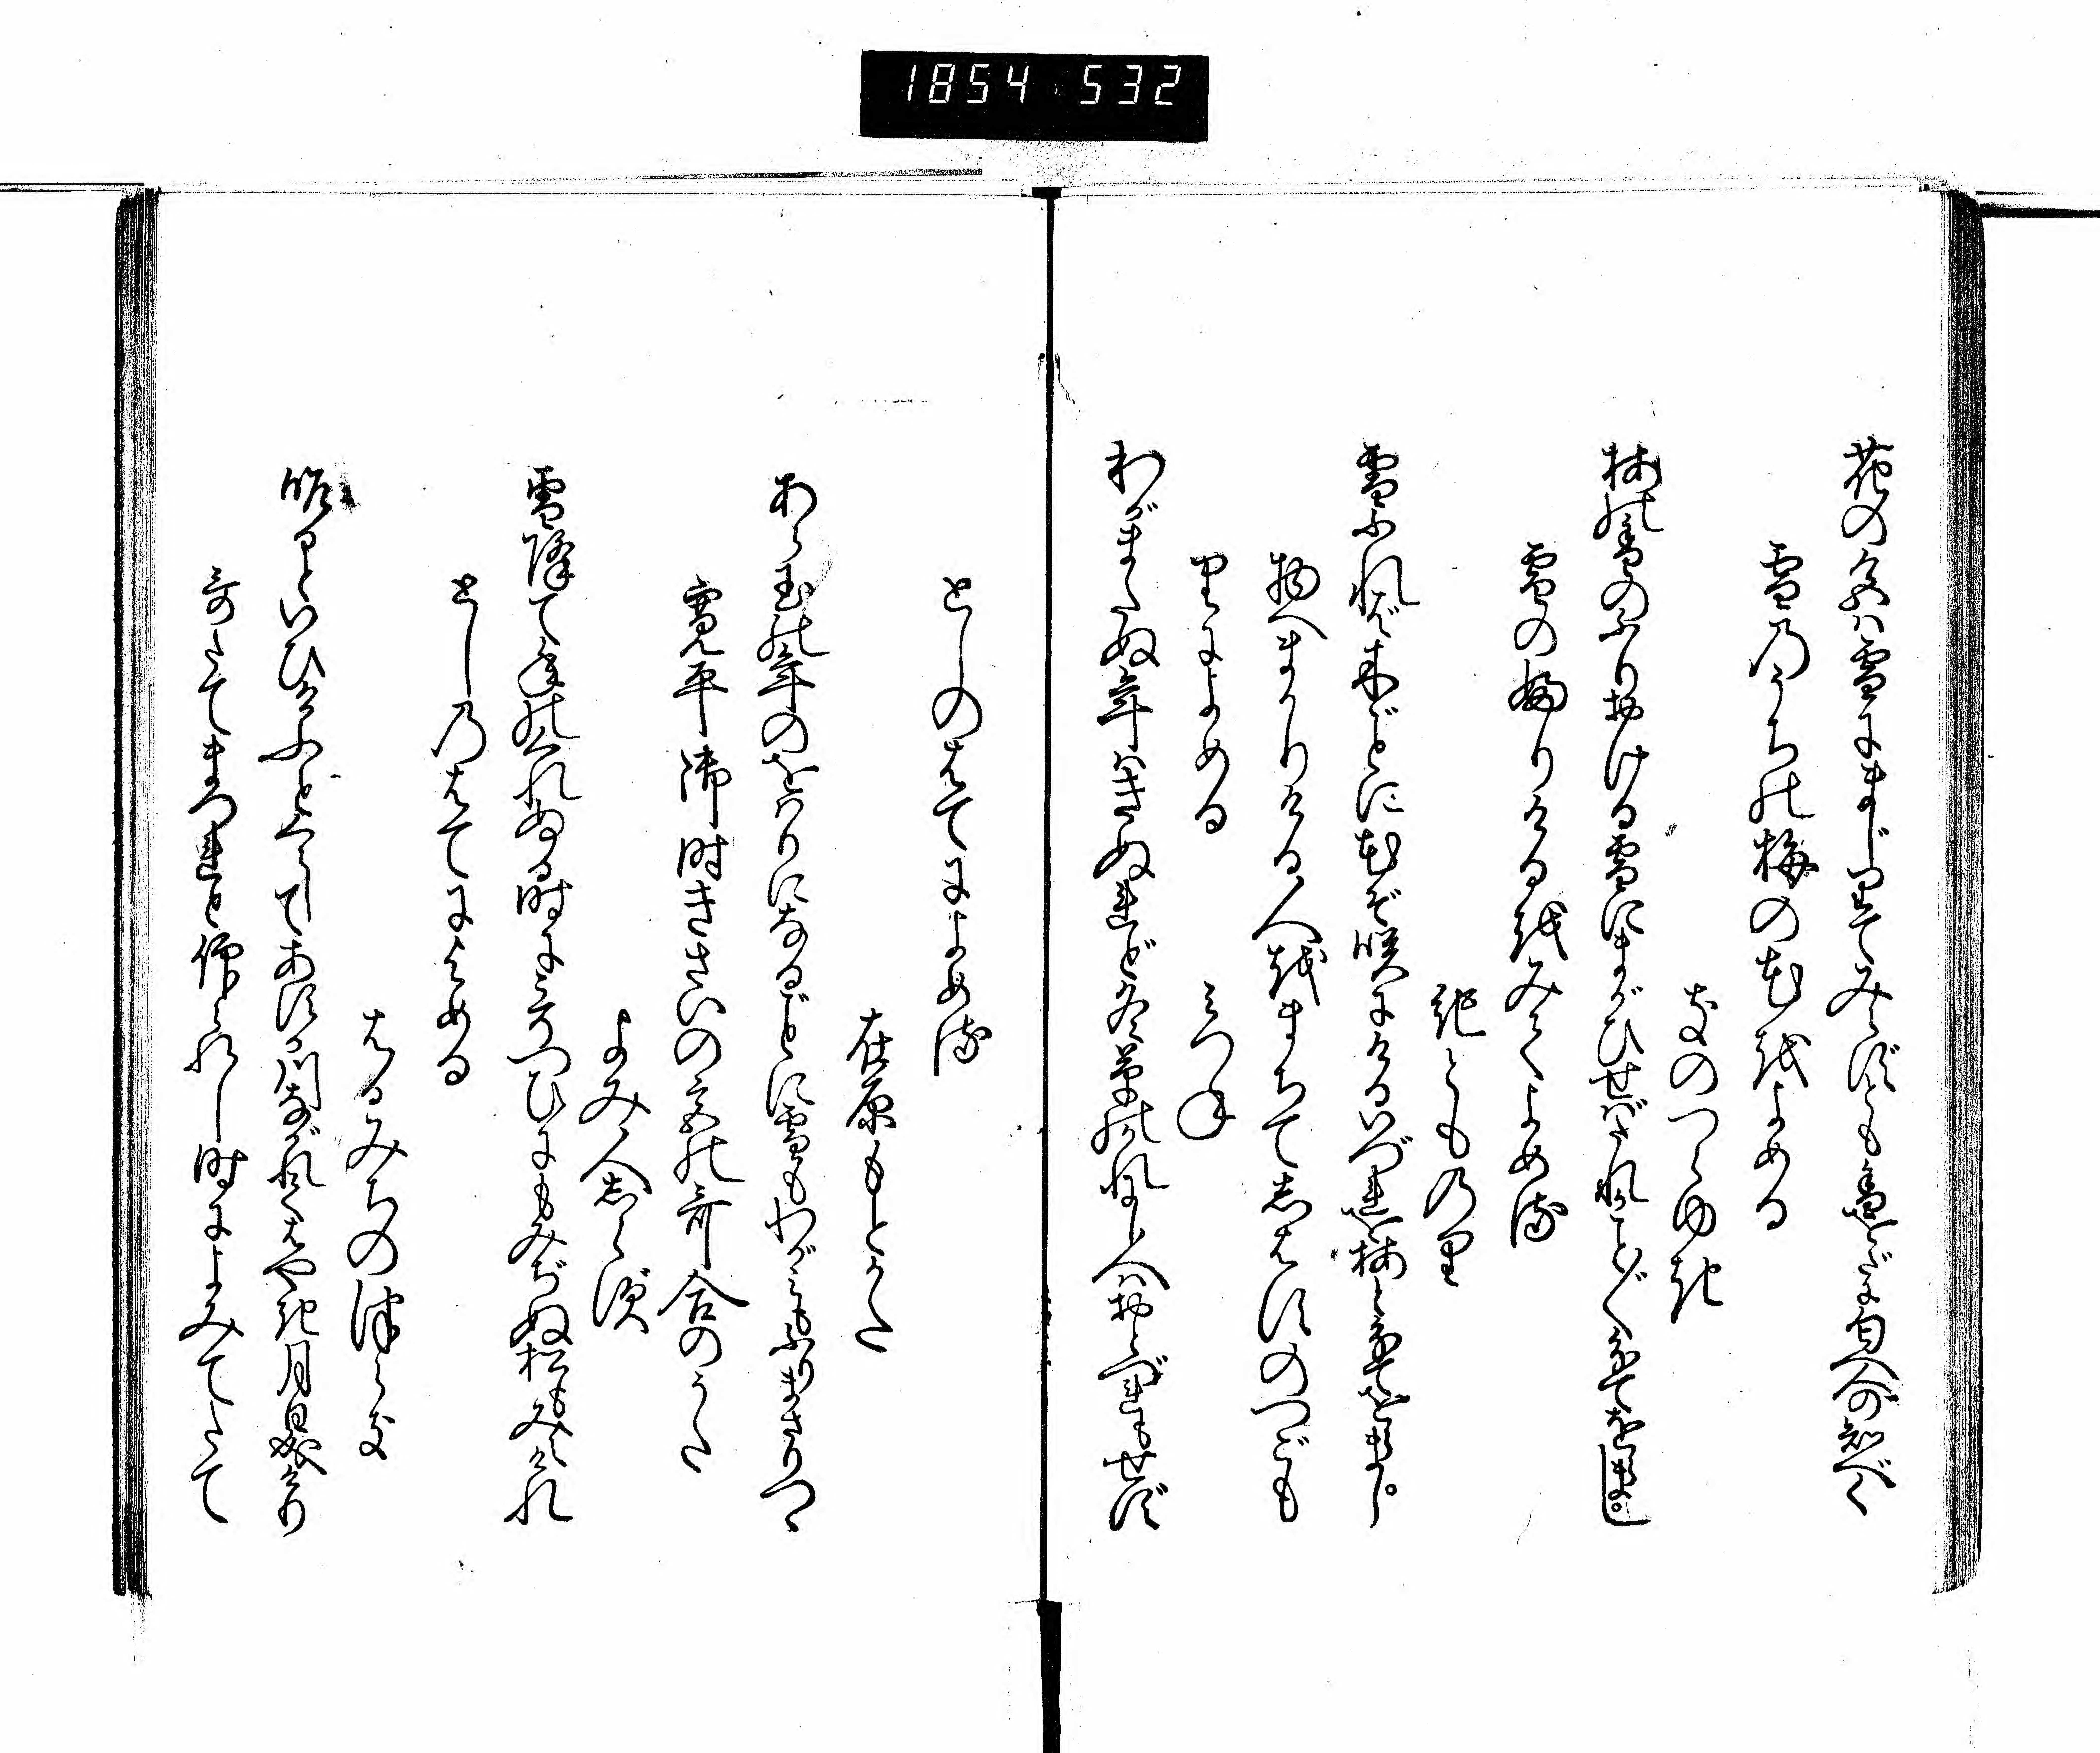 1854 532
花の色は雪にまじりてみえずとも香をだに匂へ人の知べく
雪のうちの梅の花をよめる
きのつらゆき
梅の香のふりおける雪にまがひせばたれかことごとわきてをらまし
雪の婦りける越みてよめる
紀とものり
雪ふれば木ごとに花ぞ咲にけるいづれを梅とわきてをらまし
物へまかりける人をまちてしはすのつごも
りによめる
みつね
わがまたぬ年はきぬれど冬草のかれにし人はおとづれもせず
としのはてによめる
在原もとかた
あら玉の年のをはりになるごとに雪もわがみもふりまさりつゝ
寛平御時きさいの宮の哥合のうた
よみ人志らず
雪降て年のくれぬる時にこそつひにもみぢぬ松もみえけれ
としのはてによめる
はるみちのつらき
昨日といひけふとくらしてあすか川ながれてはやき月日成けり
哥たてまつれと仰られし時によみてたて